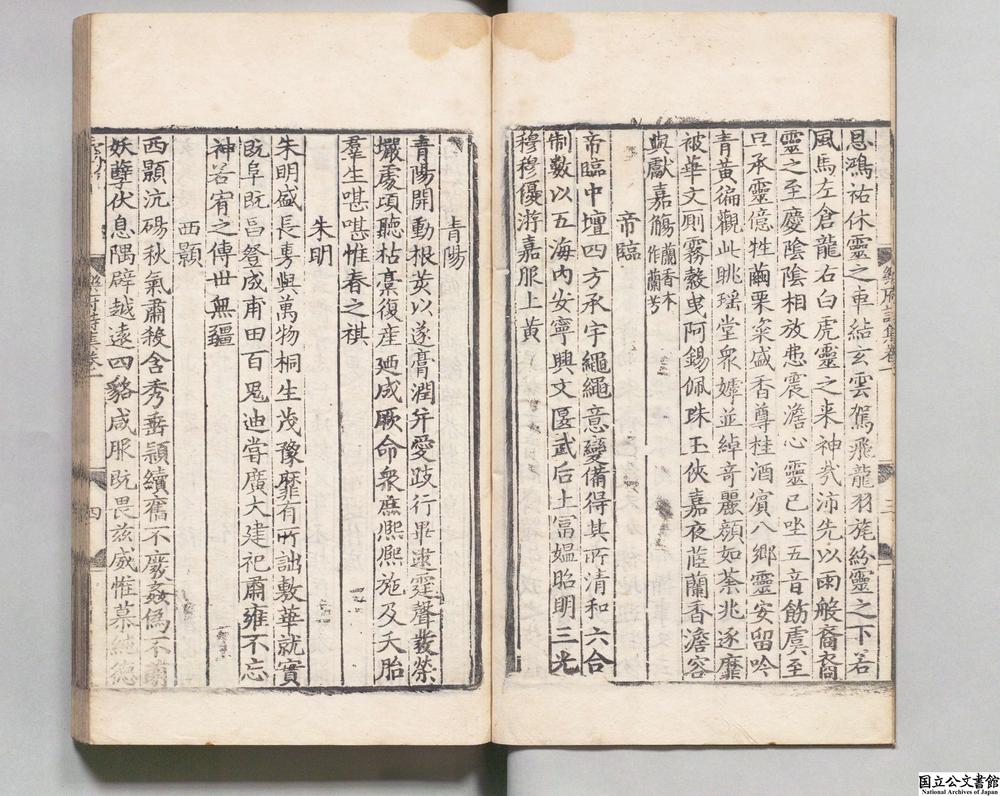 恩鴻祐休靈之車結玄雲駕飛龍羽旄紛靈之下若
風馬左倉龍右白虎靈之來神哉沛先以雨般裔裔
靈之至慶陰陰相放㤥震澹心靈已坐五音飭虞至
旦承靈億牲繭栗粢盛香尊桂酒賓八鄉靈安留吟
青黃徧觀此眺瑤堂衆嫭並綽奇麗顔如荼兆逐靡
被華文厠霧縠曳阿錫佩珠玉俠嘉夜茝蘭香澹容
與獻嘉觴蘭香本作蘭芳
帝臨
帝臨中壇四方承宇繩繩意變備得其所清和六合
制數以五海內安寧興文匽武后土富媼昭明三光
穆穆優游嘉服上黃
樂府詩集卷一
三
青陽
青陽開動根荄以遂膏潤幷愛跂行畢逮霆聲發榮
壧處項聽枯槀復産廼成厥命衆庶熙熙施及夭胎
羣生啿啿惟春之祺
朱明
朱明盛長旉與萬物桐生茂豫靡有所詘敷華就實
既阜既昌登成甫田百鬼迪嘗廣大建祀肅雍不忘
神若宥之傳世無疆
西顥
西顥沆碭秋氣肅殺含秀垂頴續舊不廢姦僞不萌
妖孽伏息隅辟越遠四貉咸服既畏兹威惟慕純德
樂府詩集卷一
四
国立公文書館
National Archives of Japan